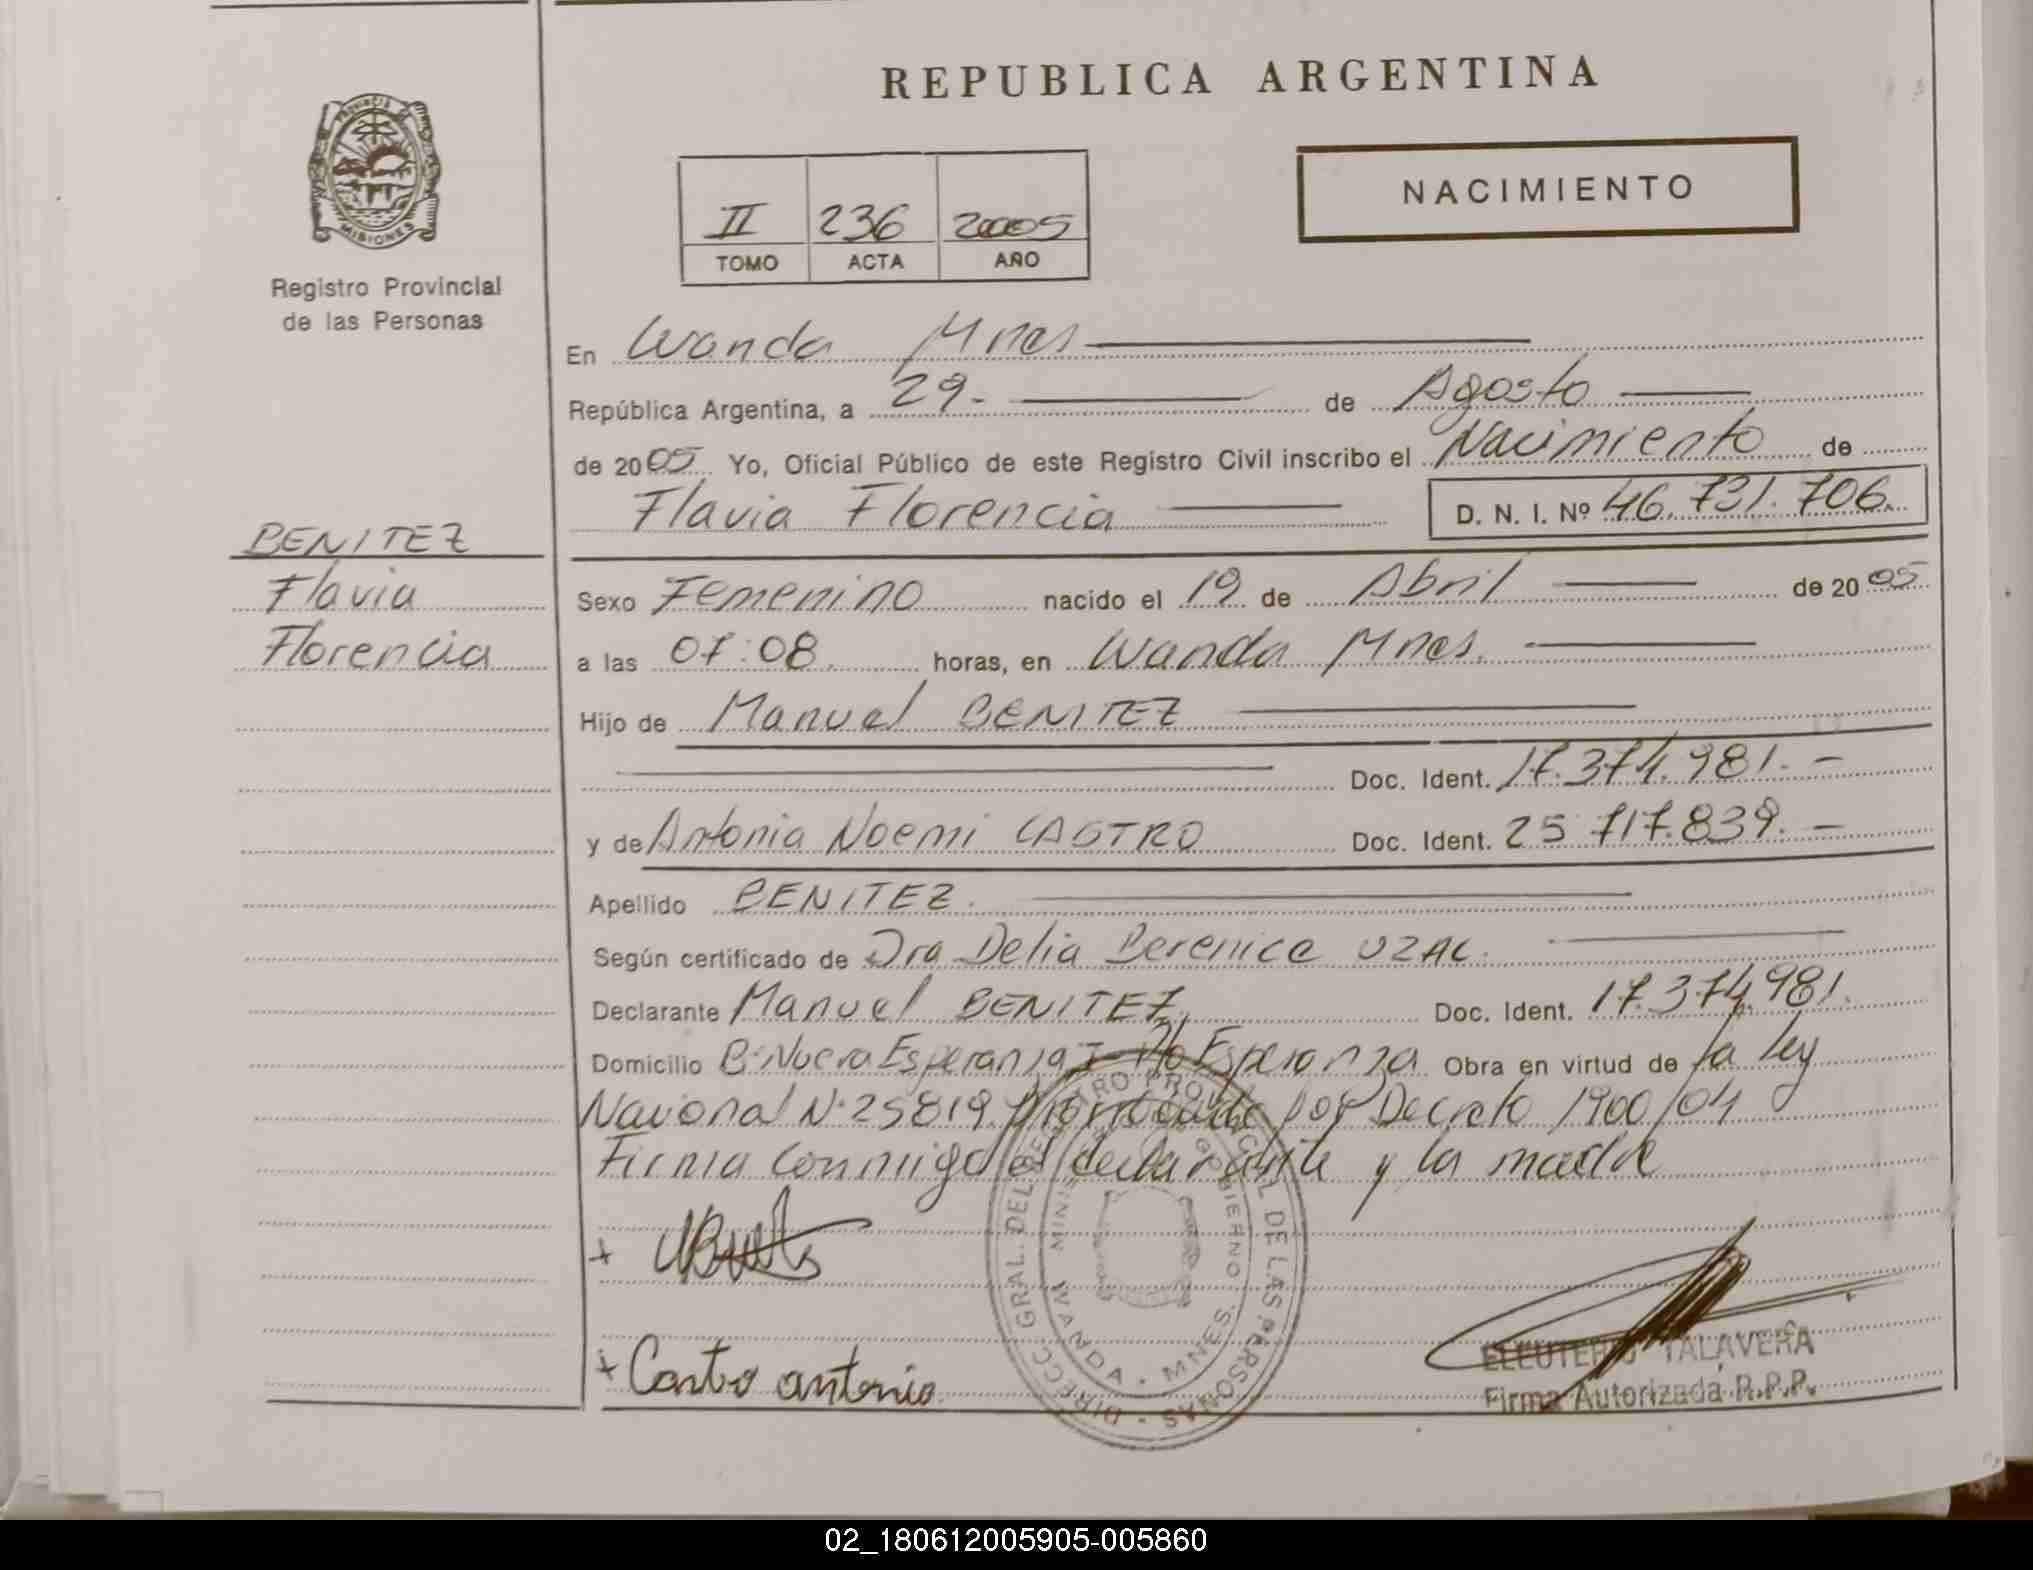 REPUBLICA ARGENTINA
NACIMIENTO
II 236 2005
TOMO ACTA AÑO
PROVINCIA DE MISIONES
Registro Provincial
de las Personas
En Wanda Mnes
República Argentina, a 29.- de Agosto
de 2005 Yo, Oficial Público de este Registro Civil inscribo el Nacimiento de
Flavia Florencia D. N. I. Nº 46.731.706.
BENITEZ
Flavia
Florencia
Sexo Femenino nacido el 19 de Abril de 2005
a las 07:08 horas, en Wanda Mnes.
Hijo de Manuel BENITEZ
Doc. Ident. 17.374.981.-
y de Antonia Noemi CASTRO Doc. Ident. 25 717.839.-
Apellido BENITEZ.
Según certificado de Dra Delia Berenice UZAL.
Declarante Manuel BENITEZ, Doc. Ident. 17.374.981.
Domicilio B. Nueva Esperanza Esperanza Obra en virtud de la ley
Nacional N. 25819 por Decreto 1900/04
Firma conmigo el declarante y la madre
+
+ Castro antonia
DIRECC. GRAL. DEL REGISTRO PROVINCIAL DE LAS PERSONAS
MINISTERIO DE GOBIERNO
WANDA - MNES.
ELEUTERIO TALAVERA
Firma Autorizada R.P.P.
02_180612005905-005860